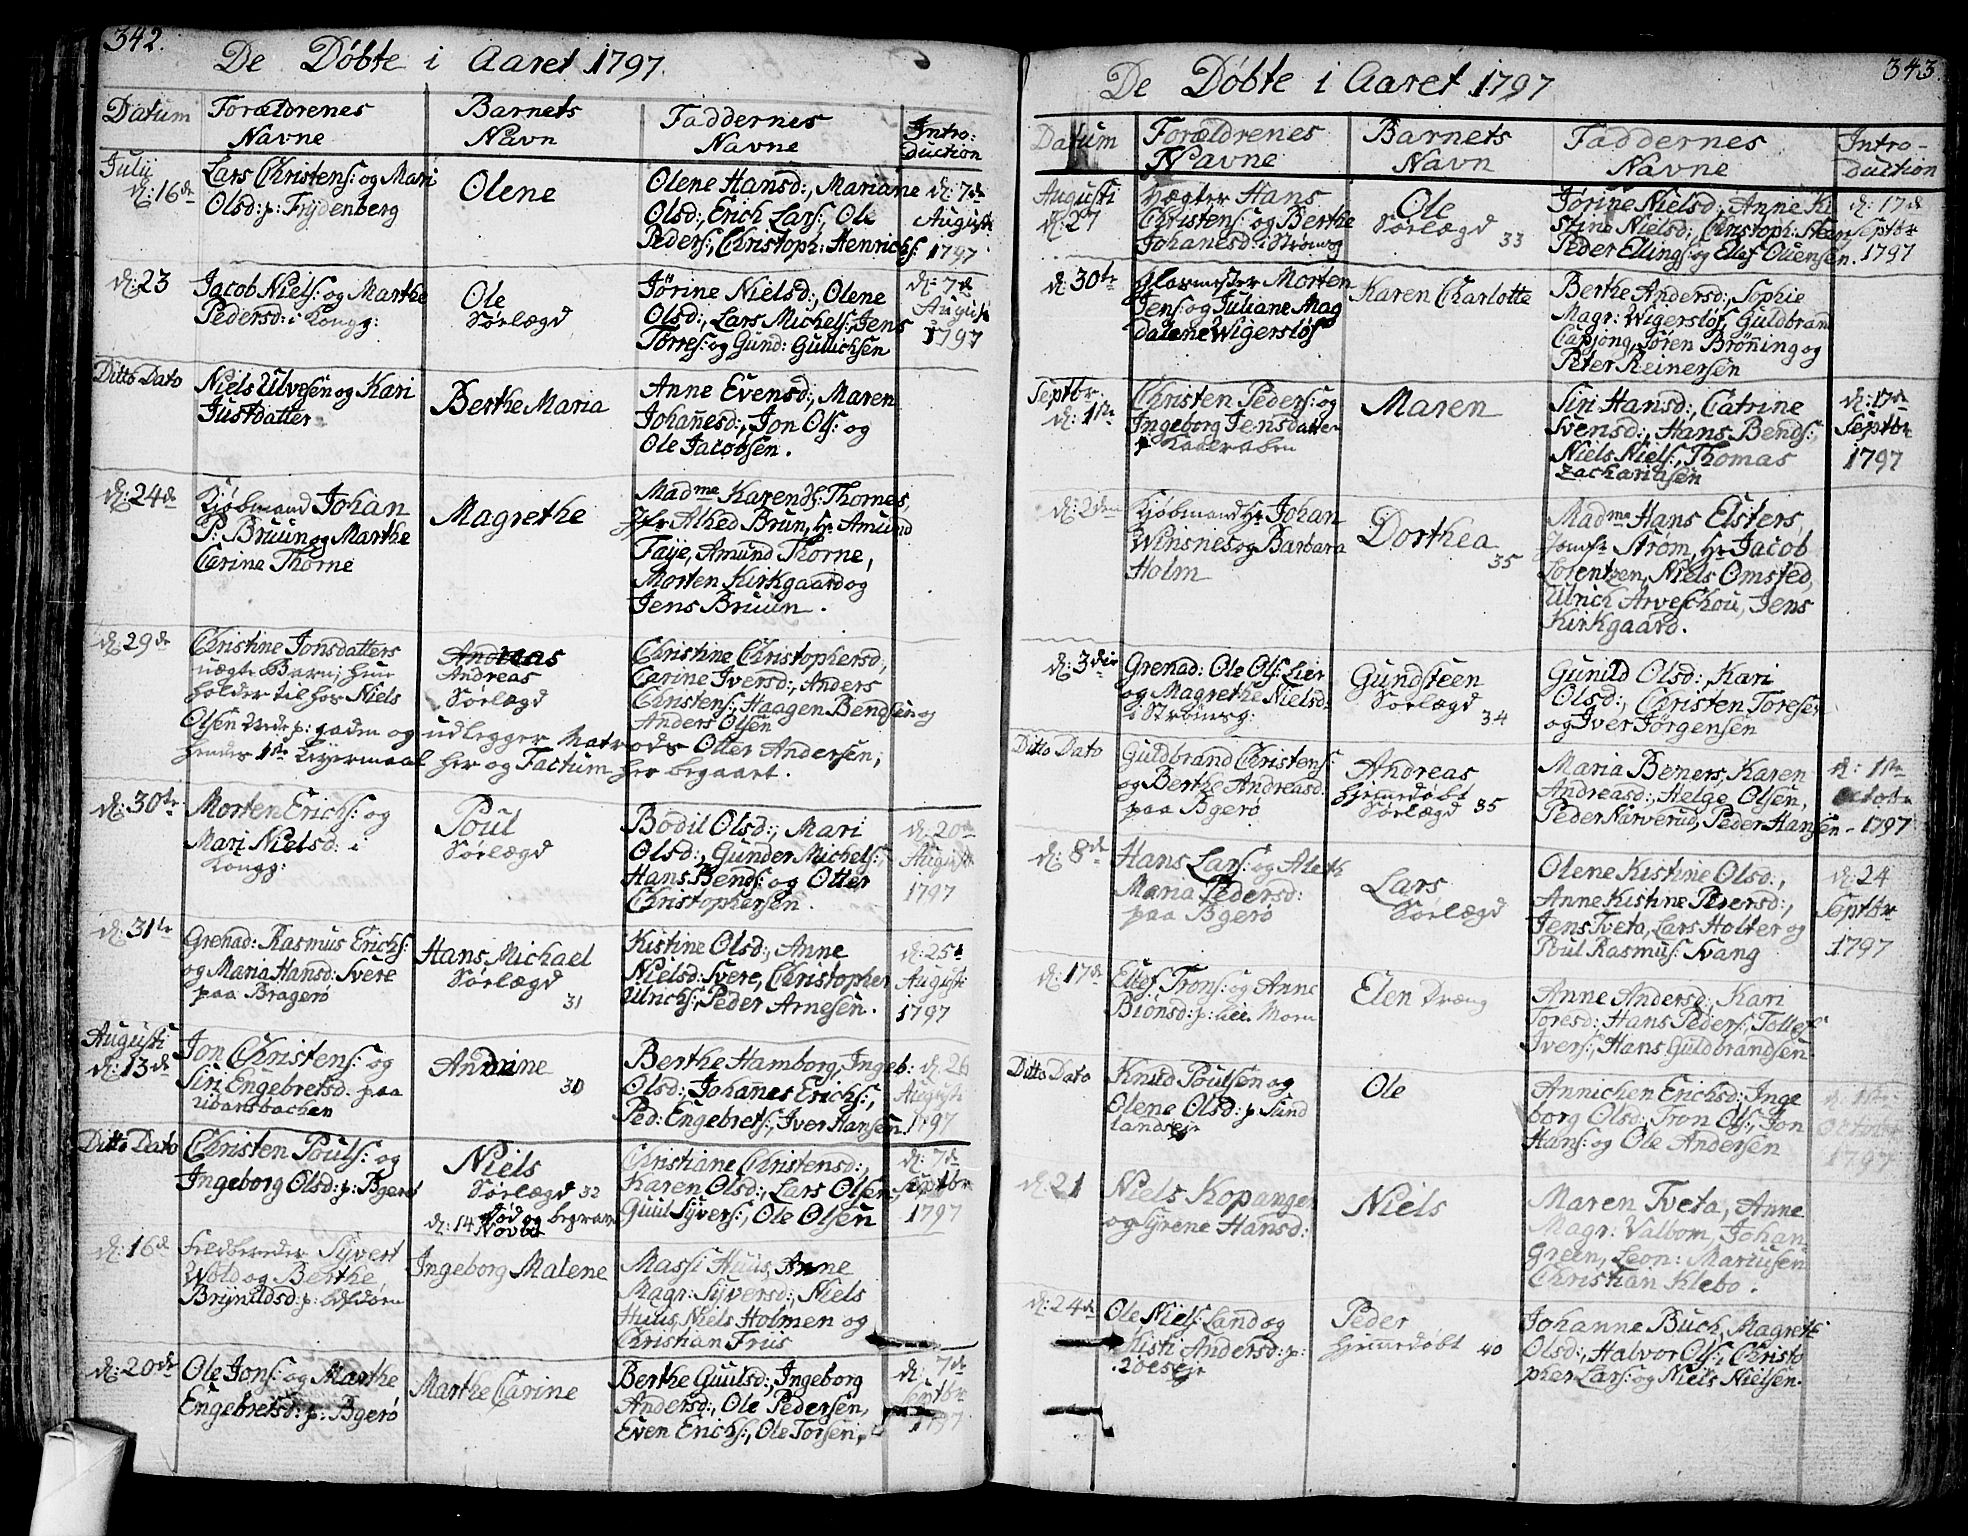 342.
De Døbte i Aaret 1797.
Datum
Forældrenes
Navne
Barnets
Navn
Faddernes
Navne
Intro:
duction
Julij
d: 16de
Lars Christens: og Mari
Olsd: p: Frydenberg
Olene
Olene Hansd:, Mariane
Olsd:, Erich Lars:, Ole
Peders:, Christoph: Henrichs:
d: 7de
Augusti
1797
d: 23
Jacob Niels: og Marthe
Pedersd: i Kongg:
Ole
Sørlægd
Jørine Nielsd:, Olene
Olsd:, Lars Michels:, Jens
Torres: og Gund: Gulichsen
d: 7de
Augusti
1797
Ditto Dato
Niels Ulvesen og Kari
Justdatter
Berthe Maria
Anne Evensd:, Maren
Johannesd:, Jon Ols: og
Ole Jacobsen.
d: 24de
Kiøbmand Johan
P: Bruun og Marthe
Carine Thorne
Magrethe
Madme Karen Thornes,
Jfr Alhed Brun, Hr Amund
Faije, Amund Thorne,
Morten Kirkgaard og
Jens Bruun.
d: 29de
Christine Jonsdatters
uægte Barn; hun
holder til hos Niels
Olsen p: gaden og udlegger Matrods Otter Andersen;
hendes 1ste Leyermaal her og Factum her begaaet.
Andreas
Andreas
Sørlægd
Christine Christophersd:,
Carine Iversd:, Anders
Christens:, Haagen Bendsen og
Anders Olsen
d: 30te
Morten Erichs: og
Mari Nielsd: i
Kongg:
Poul
Sørlægd
Bodil Olsd:, Mari
Olsd:, Gunder Michels:,
Hans Bends: og Otter
Christophersen.
d: 20de
Augusti
1797
d: 31te
Grenad: Rasmus Erichs:
og Maria Hansd: Svere
paa Bragerø
Hans Michael
Sørlægd
31
Kistine Olsd:, Anne
Nielsd: Svere, Christopher
Ulrichs:, Peder Arnesen.
d: 25de
Augusti
1797
Augusti
d: 13de
Jon Christens: og
Siri Engebretsd: paa
Andrine
30
Berthe Hamborg, Ingeb:
Olsd:, Johannes Erichs:,
Ped: Engebrets:, Iver Hansen.
d: 26
Augusti
1797
Ditto Dato
Christen Pouls: og
Ingeborg Olsd: p: Bgerø
Niels
Sørlægd 32
død og begraven
d: 14 Novbr
Christiane Christensd:,
Karen Olsd:, Lars Olsen,
Guul Syvers:, Ole Olsen
d: 7de
Septbr
1797
d: 16de
Feldbereder Syvert
Wold og Berthe
Brynildsd: p:
Ingeborg Malene
Massi Huus, Anne
Magr: Syversd:, Niels
Huus, Niels Holmen og
Christian Friis
d: 20de
Ole Jons: og Marthe
Engebretsd: p: Bgerø
Marthe Carine
Berthe Guulsd:, Ingeborg
Andersd:, Ole Pedersen,
Even Erichs:, Ole Torsen,
d: 7de
Septbr
1797
343.
De Døbte i Aaret 1797
Datum
Forældrenes
Navne
Barnets
Navn
Faddernes
Navne
Intro-
duction
Augusti
d: 27
Vægter Hans
Christens: og Berthe
Johanesd: i Strømsg
Ole
Sørlægd 33
Jørine Nielsd:, Anne Ki
stine Nielsd:, Christoph: Steen,
Peder Ellings: og Ellef Evensen.
d: 17de
Septbr
1797
d: 30te
Glarmester Morten
Jens: og Juliane Mag
dalene Wigersløf
Karen Charlotte
Berthe Andersd:, Sophie
Magr: Wigersløf, Guldbrand
Capjong, Søren Brønning og
Peter Reinersen
Septbr
d: 1ste
Christen Peders: og
Ingeborg Jensdatter
Maren
Siri Hansd:, Catrine
Svensd:, Hans Bends:,
Niels Niels:, Thomas
Zachariasen
d: 17de
Septbr
1797
d: 2den
Kiøbmand Hr Johan
Winsnes og Barbara
Holm
Dorthea
35
Madme Hans Elsters,
Jomfr Strøm, Hr Jacob
Lorentzen, Niels Omsted,
Ulrich Arveschou, Jens
Kirkgaard.
d: 3die
Grenad: Ole Ols: Lier
og Magrethe Nielsd:
i Strømsg:
Gundsteen
Sørlægd
34
Gunild Olsd:, Kari
Olsd:, Christen Toresen
og Iver Jørgensen
Ditto Dato
Guldbrand Christens:
og Berthe Andreasd:
paa Bgerø
Andreas
Hjemmedøbt
Sørlægd 35
Maria Beners, Karen
Andreasd:, Helge Olsen,
Peder Narverud, Peder Hansen.
d: 1ste
Octobr
1797
d: 8de
Hans Lars: og Aleth
Maria Pedersd:
paa Bgerø
Lars
Sørlægd
Olene Kistine Olsd:,
Anne Kistine Pedersd:,
Jens Tveta, Lars Holter og
Poul Rasmus: Svang
d: 24
Septbr
1797
d: 17de
Ellef Trons: og Anne
Biønsd: p:
Elen
Anne Andersd:, Kari
Toresd:, Hans Peders:, Tollef
Ivers:, Hans Guldbrandsen.
Ditto Dato
Knud Poulsen og
Olene Olsd: p: Sund
landseje
Ole
Annichen Erichsd:, Inge
borg Olsd:, Tron Ols:, Jon
Hans: og Ole Andersen
d: 1ste
Octobr
1797
d: 21
Niels Kopanger
og Syrene Hansd:
Niels
Maren Tveta, Anne
Magr: Valbom, Johan
Green, Leon: Mariusen
Christian Klebo.
d: 24de
Ole Niels: Land og
Kisti Andersd: p:
Peder
Hjemmedøbt 40
Johanne Buch, Magrethe
Olsd:, Halvor Ols:, Christo
pher Lars: og Niels Nielsen.